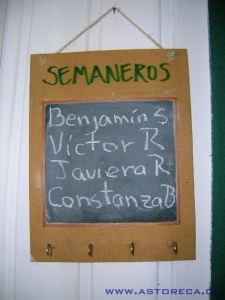 SEMANEROS
Benjamín S
Víctor R
Javiera R
Constanza B
WWW.ASTORECA.CL